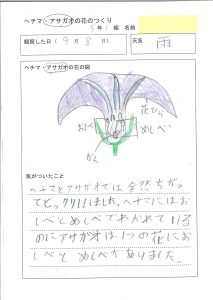 ヘチマ・アサガオの花のつくり
5年1組 名前
観察した日(9月8日)
天気 雨
ヘチマ・アサガオの花の図
花びら
おしべ
めしべ
がく
気がついたこと
ヘチマとアサガオでは全然ちがっ
てビックリしました。ヘチマにはお
しべとめしべでわかれている
のにアサガオは1つの花にお
しべとめしべがありました。